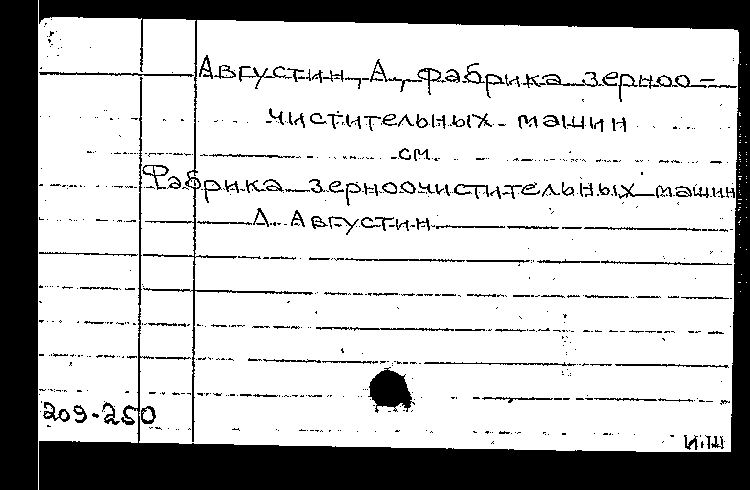 Августин, А., фабрика зерноо-
чистительных машин
см.
Фабрика зерноочистительных машин
А. Августин
209-250
И.Ш